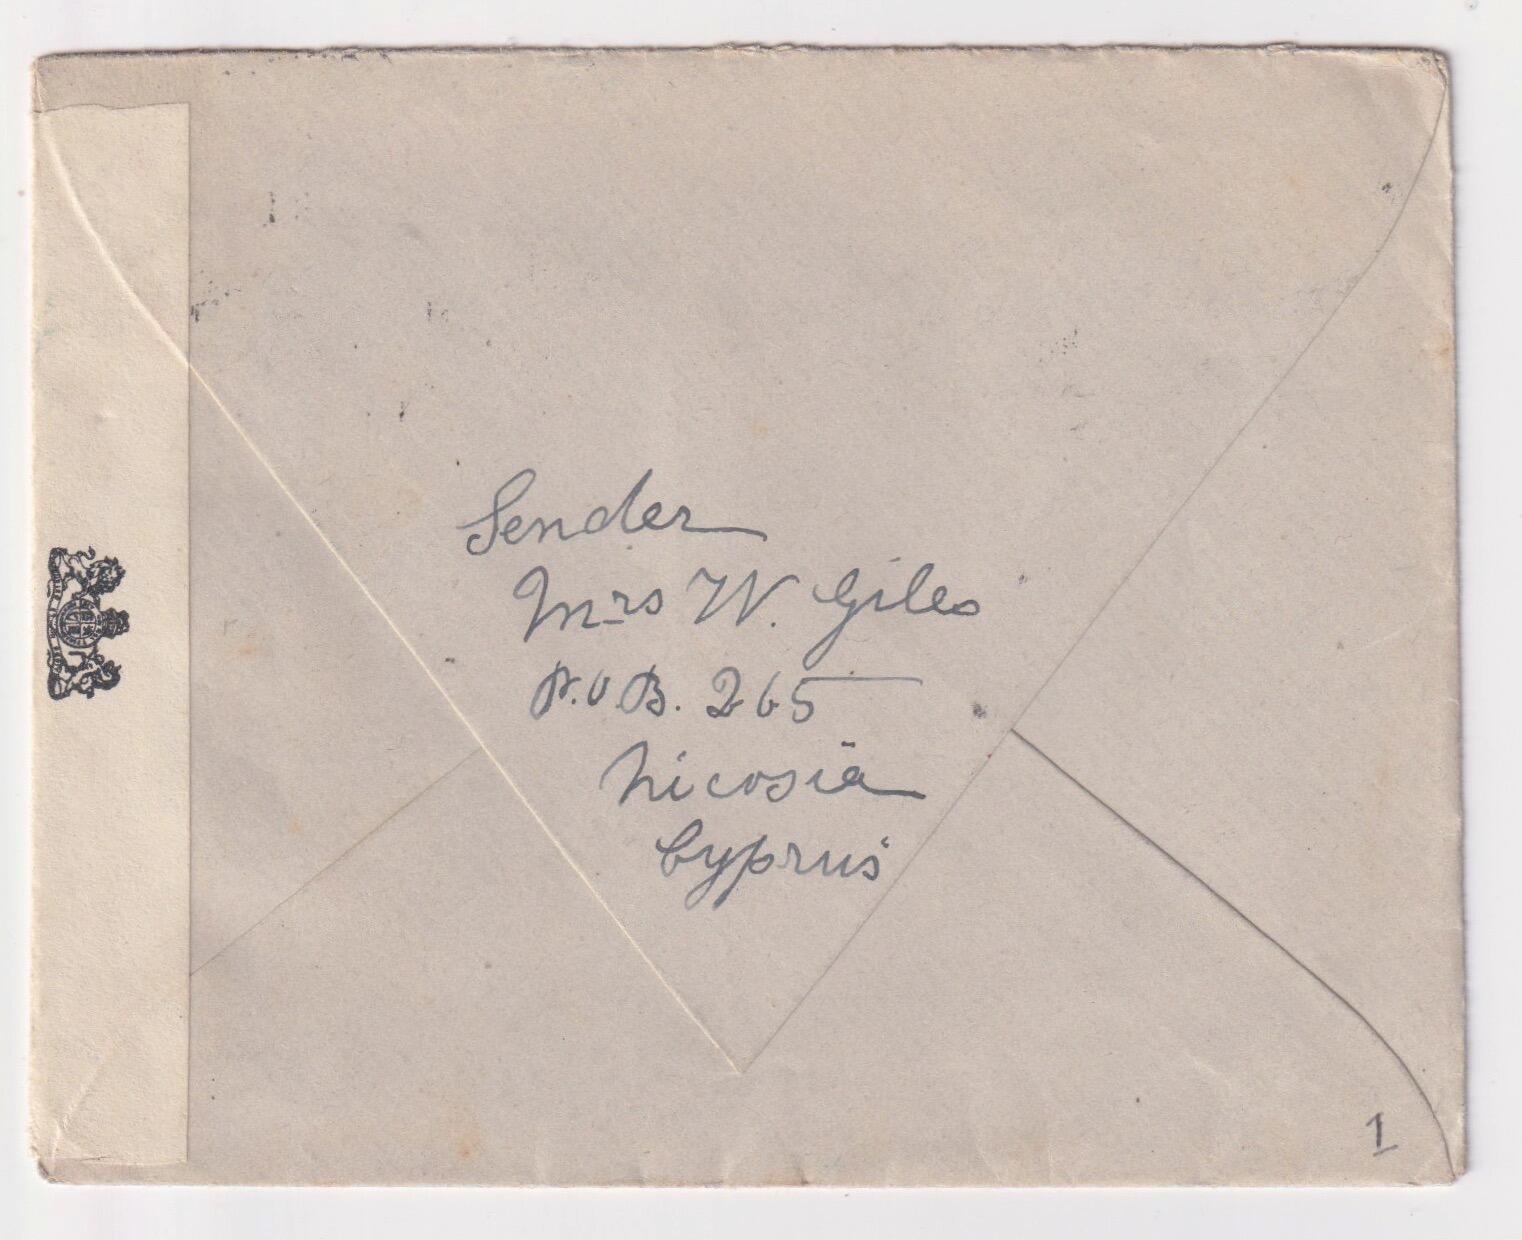 Sender
Mrs W. Giles
P.O.B. 265
Nicosia
Cyprus
1